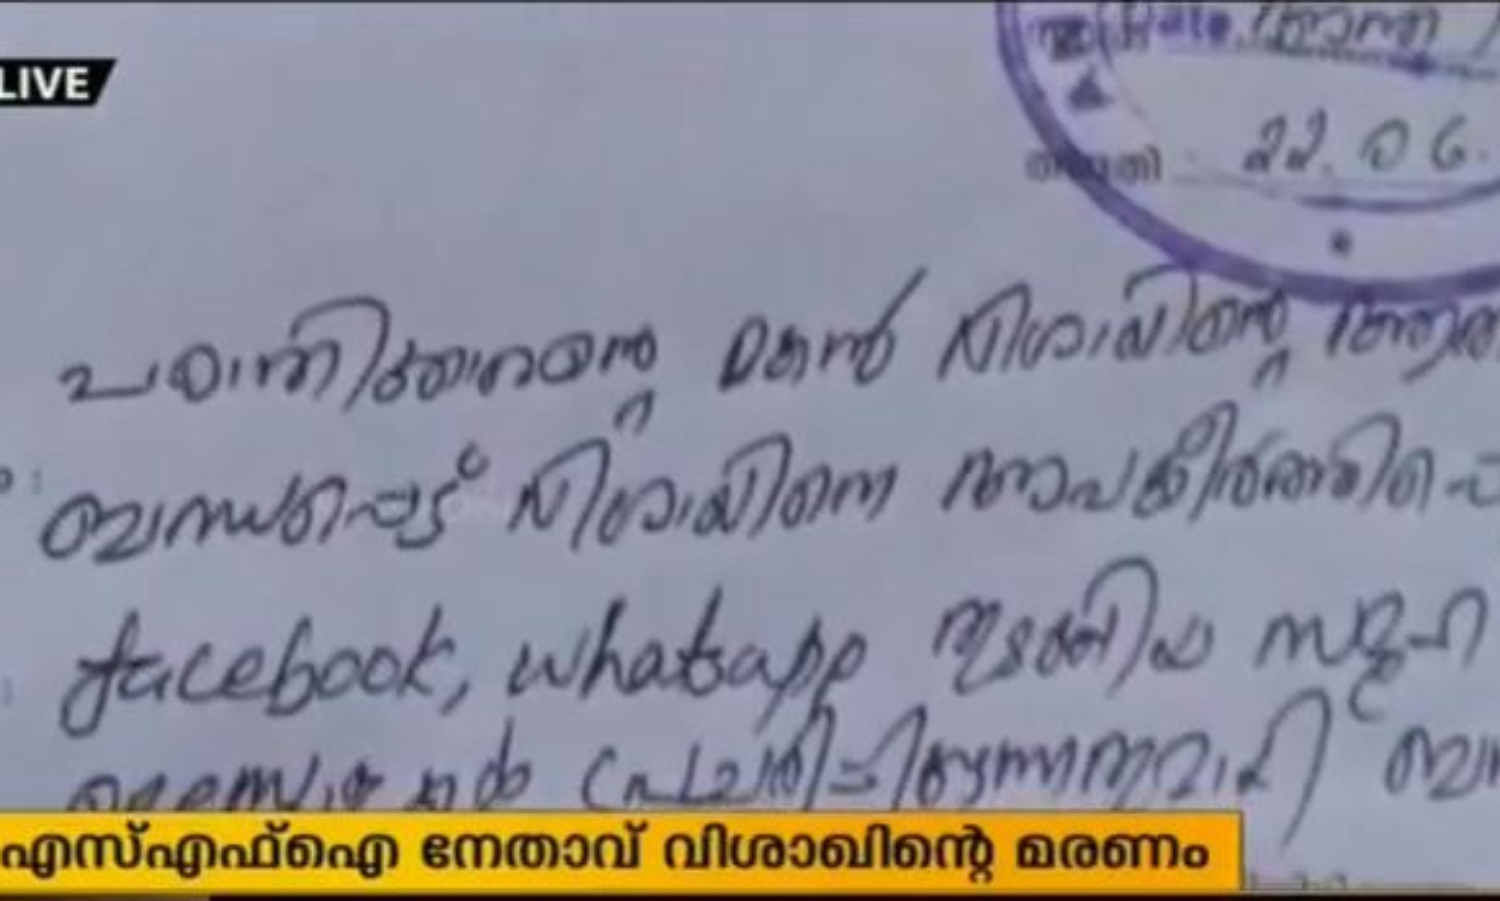 LIVE
Date
തിയതി 22.06.
പരാതിക്കാരന്റെ മകൻ വിശാഖിന്റെ
ബന്ധപ്പെട്ട് വിശാഖിനെ അപകീർത്തിപ്പെ
facebook, whatsapp തുടങ്ങിയ
പ്രചരിപ്പിക്കുന്നതുമായി
എസ്എഫ്ഐ നേതാവ് വിശാഖിന്റെ മരണം